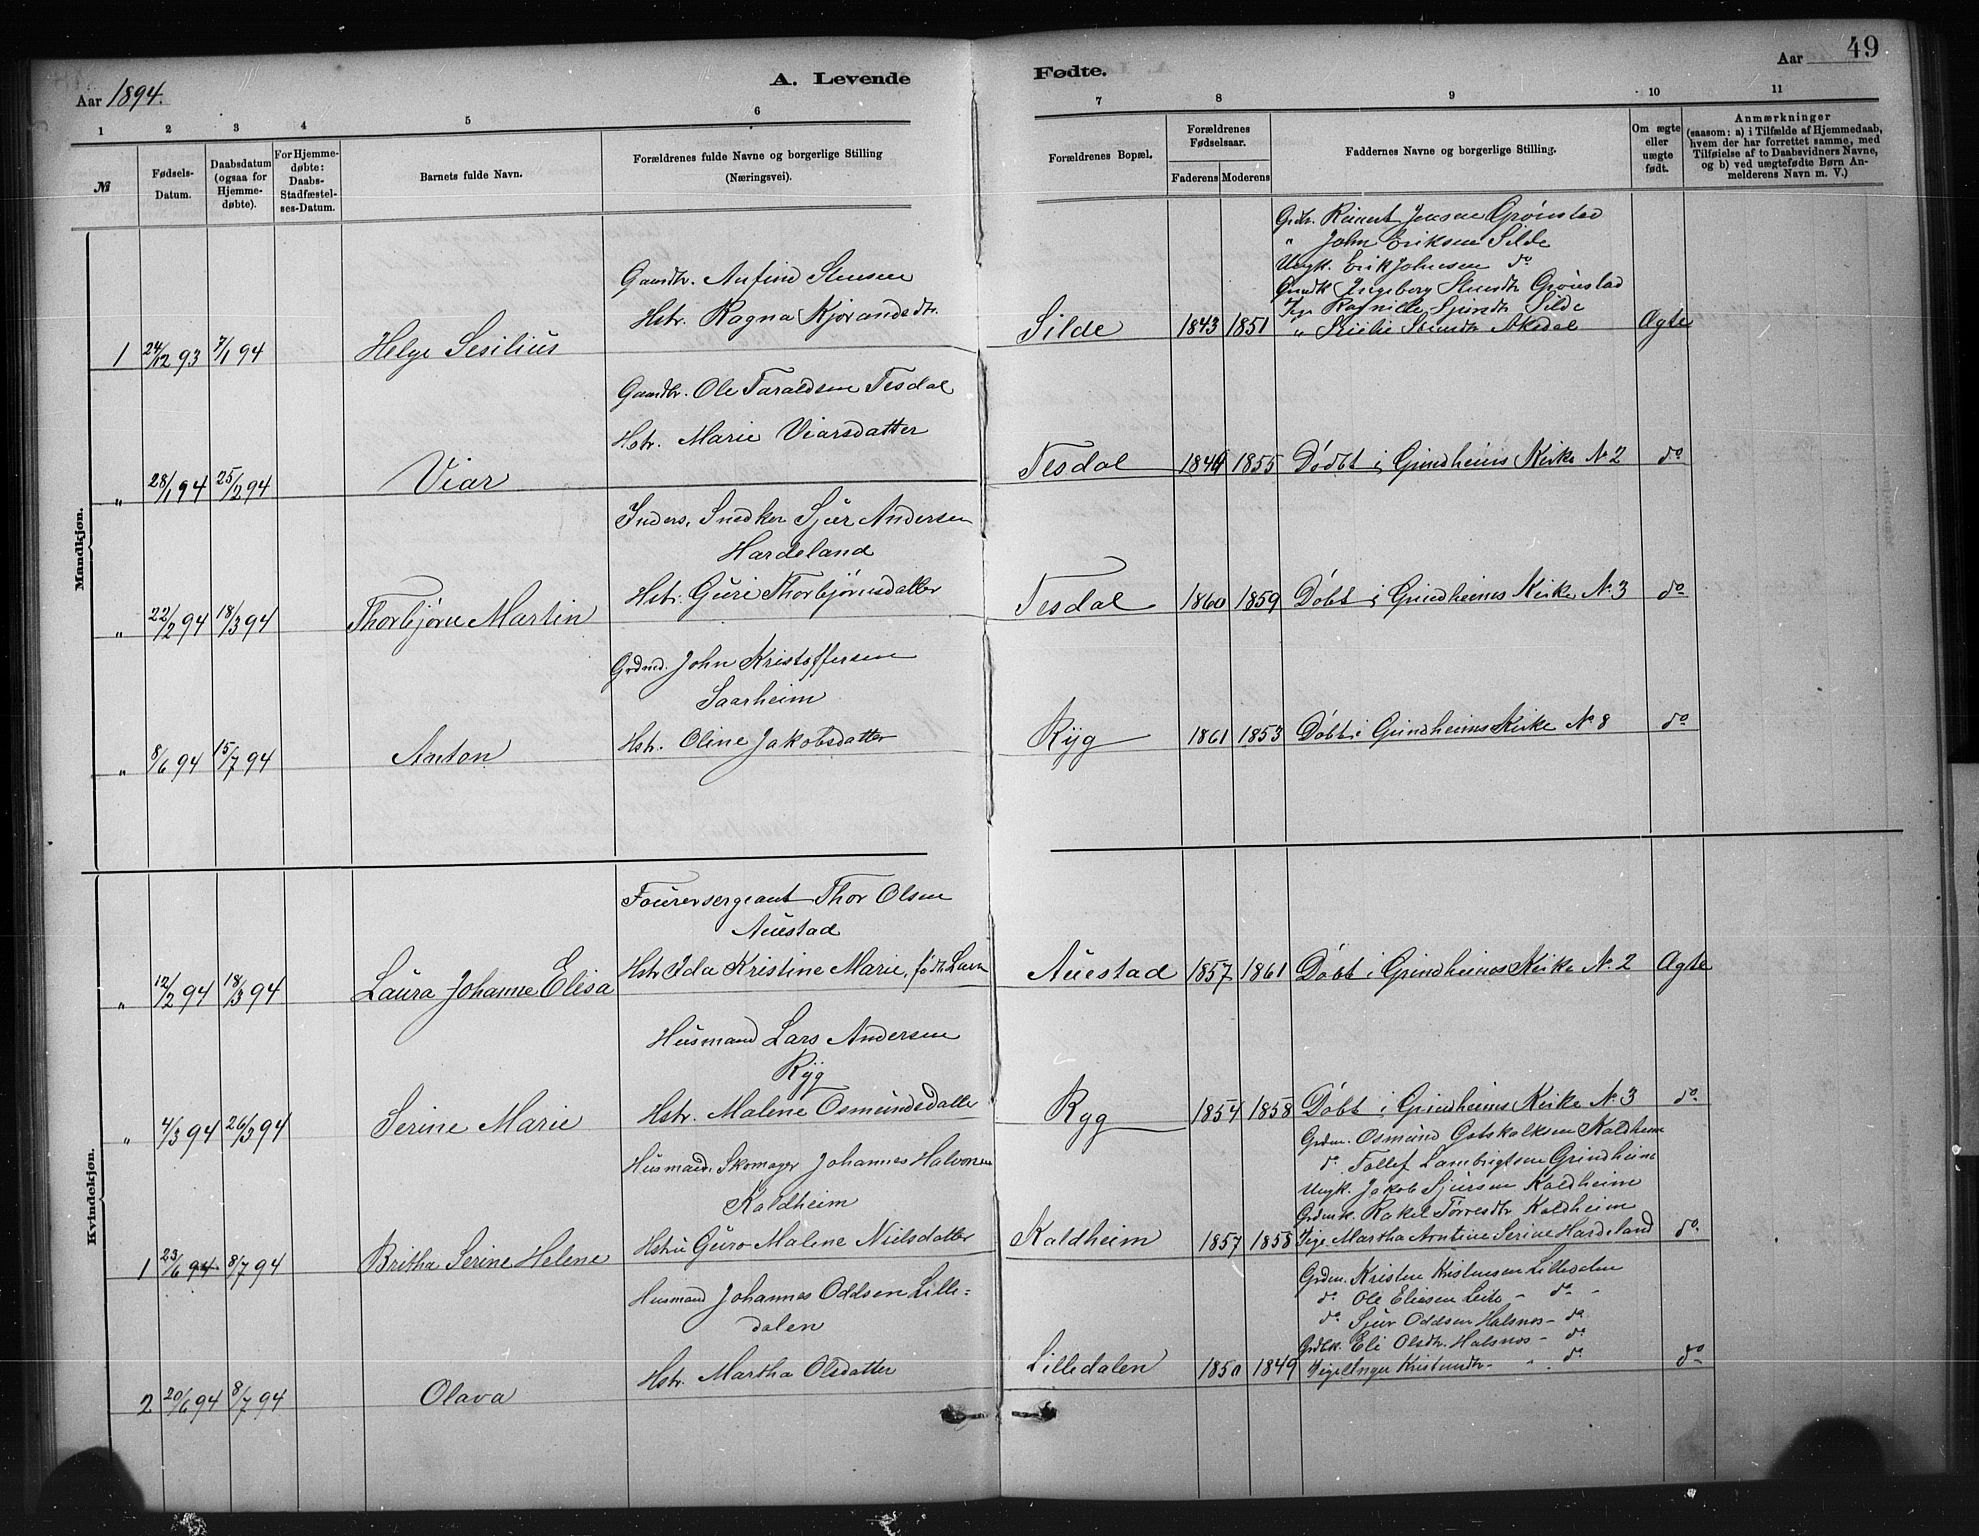 49
A. Levende Fødte.
Aar 1894.
Aar
1 2 3 4 5 6 7 8 9 10 11
№
Fødsels-Datum.
Daabsdatum (ogsaa for Hjemme-døbte).
For Hjemme-døbte: Daabs-Stadfæstel-ses-Datum.
Barnets fulde Navn.
Forældrenes fulde Navne og borgerlige Stilling (Næringsvei).
Forældrenes Bopæl.
Forældrenes Fødselsaar.
Faderens Moderens
Faddernes Navne og borgerlige Stilling.
Om ægte eller uægte født.
Anmærkninger
(saasom: a) i Tilfælde af Hjemmedaab, hvem der har forrettet samme, med Tilføielse af to Daabsvidners Navne, og b) ved uægtefødte Børn Anmelderens Navn m. V.)
Mandkjøn.
Grdbr. Reinert Jensen Grønstad
" John Eriksen Silde
Ungk. Erik Johnsen do
Ingeborg Grønstad
Silde
Aksdal
Gaardbr. Anfind Stensen
Hstr. Ragna Kjørandsdtr.
1 24/12 93 7/1 94 Helge Sesilius Silde 1843 1851 Ægte
Gaardbr. Ole Taraldsen Tesdal
Hstr. Marie Viarsdatter
" 28/1 94 25/2 94 Viar Tesdal 1849 1855 Døbt i Grindheims Kirke No 2 do
Inders. Snedker Sjur Andersen
Hardeland
Hstr. Guri Thorbjørnsdatter
" 22/2 94 18/3 94 Thorbjørn Martin Tesdal 1860 1859 Døbt i Grindheims Kirke No 3 do
Grdmd. John Kristoffersen
Saarheim
Hstr. Oline Jakobsdatter
" 8/6 94 15/7 94 Anton Ryg 1861 1853 Døbt i Grindheims Kirke No 8 do
Kvindekjøn.
Fourersergeant Thor Olsen
Auestad
Hstr. Ida Kristine Marie, født
" 12/2 94 18/3 94 Laura Johanne Elisa Auestad 1857 1861 Døbt i Grindheims Kirke No 2 Ægte
Husmand Lars Andersen
Ryg
Hstr. Malene Osmundsdatter
" 4/3 94 26/3 94 Serine Marie Ryg 1854 1858 Døbt i Grindheims Kirke No 3 do
Grdm. Osmund Gotskalksen Kaldheim
do Tollef Lambrigtsen Grindheim
Ungk. Jakob Sjursen Kaldheim
Grdmk. Rakel Torresdtr Kaldheim
Pige Martha Arntine Serine Hardeland
Husmand, Skomager Johannes Halvorsen
Kaldheim
Hstru Guro Malene Nielsdatter
1 23/6 94 8/7 94 Britha Serine Helene Kaldheim 1857 1858 do
Grdm. Kristen Kristensen Lilledalen
do Ole Eliasen Leite - do -
do Sjur Oddsen Halsnes - do
Grdbk. Eli Olsdtr. Halsnes - do
Pige Inger do
Husmand Johannes Oddsen Lille=
dalen
Hstr. Martha Olsdatter
2 20/6 94 8/7 94 Olava Lilledalen 1850 1849 do